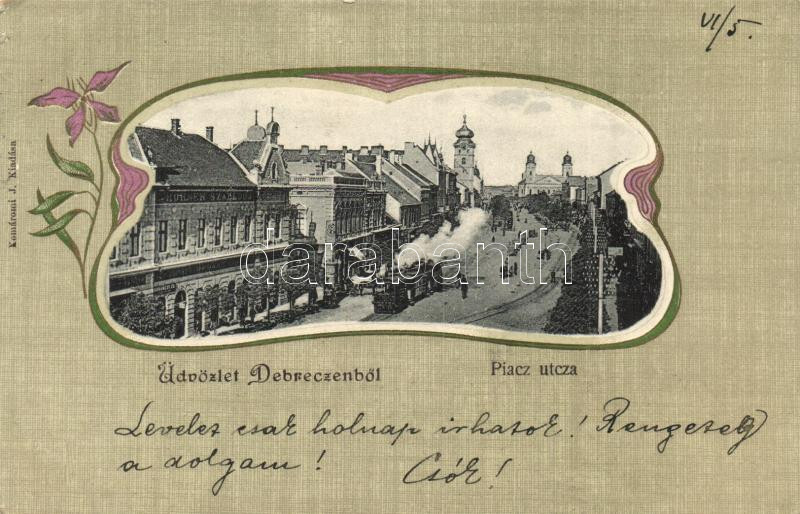 VI/5.
Komáromi J. Kiadása
darabanth
Üdvözlet Debreczenből
Piacz utcza
Levelet csak holnap irhatok! Rengeteg
a dolgam! Csók!